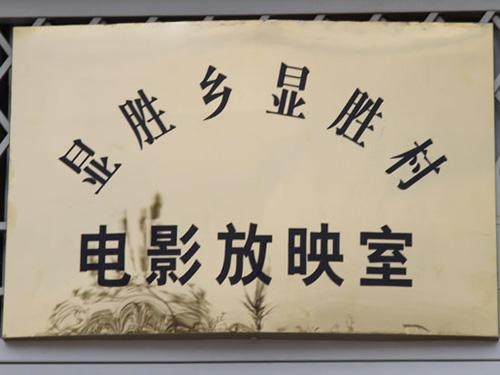 显胜乡显胜村
电影放映室